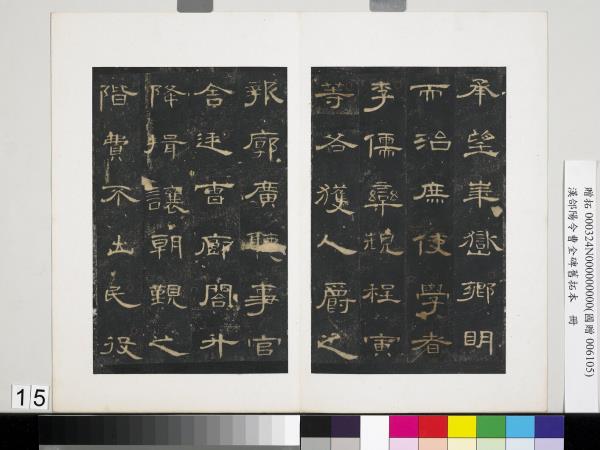 承望華嶽鄉明
而治庶使學者
李儒欒規程寅
等各獲人爵之
報廓廣聽事官
舍廷曹廊閣升
降揖讓朝覲之
階費不出民役
贈拓 000324N000000000(國贈 006105)
漢郃陽令曹全碑舊拓本 冊
15